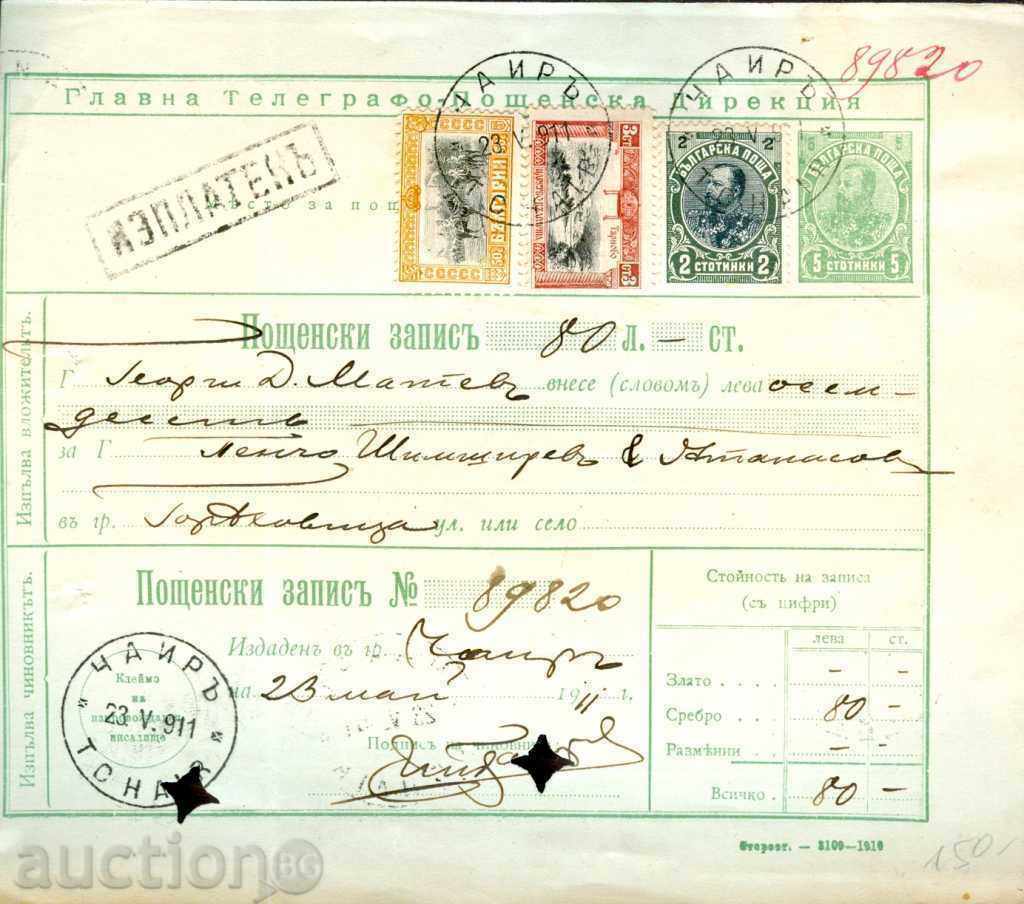 89820
Главна Телеграфо-Пошенска Дирекция
ЧАИРЪ
23.V.911
ЧАИРЪ
ИЗПЛАТЕНЪ
БЪЛГАРИЯ
50
СССССС
3 ст
Търново
3 СТБ
2 2
БЪЛГАРСКА ПОЩА
2 СТОТИНКИ 2
БЪЛГАРСКА ПОЩА
5 СТОТИНКИ 5
място за
Изпълва вложительтъ.
Пощенски записъ 80 Л. — СТ.
Г Георги Д. Матевъ внесе (словомъ) лева осем-
десеть
за Г Пенчо Шимширевъ & Атанасовъ
въ гр. Г. Орѣховица ул. или село
Изпълва чиновникътъ.
Пощенски записъ № 89820
Издаденъ въ гр. Чаиръ
на 23 май 1911 г.
Подпись на чиновника
Клеймо
на
писалище
ЧАИРЪ
23.V.911
TCHAIR
Стойность на записа
(съ цифри)
лева ст.
Злато - -
Сребро 80 -
Размѣнни - -
Всичко 80 -
3109—1910
150.-
auction BG